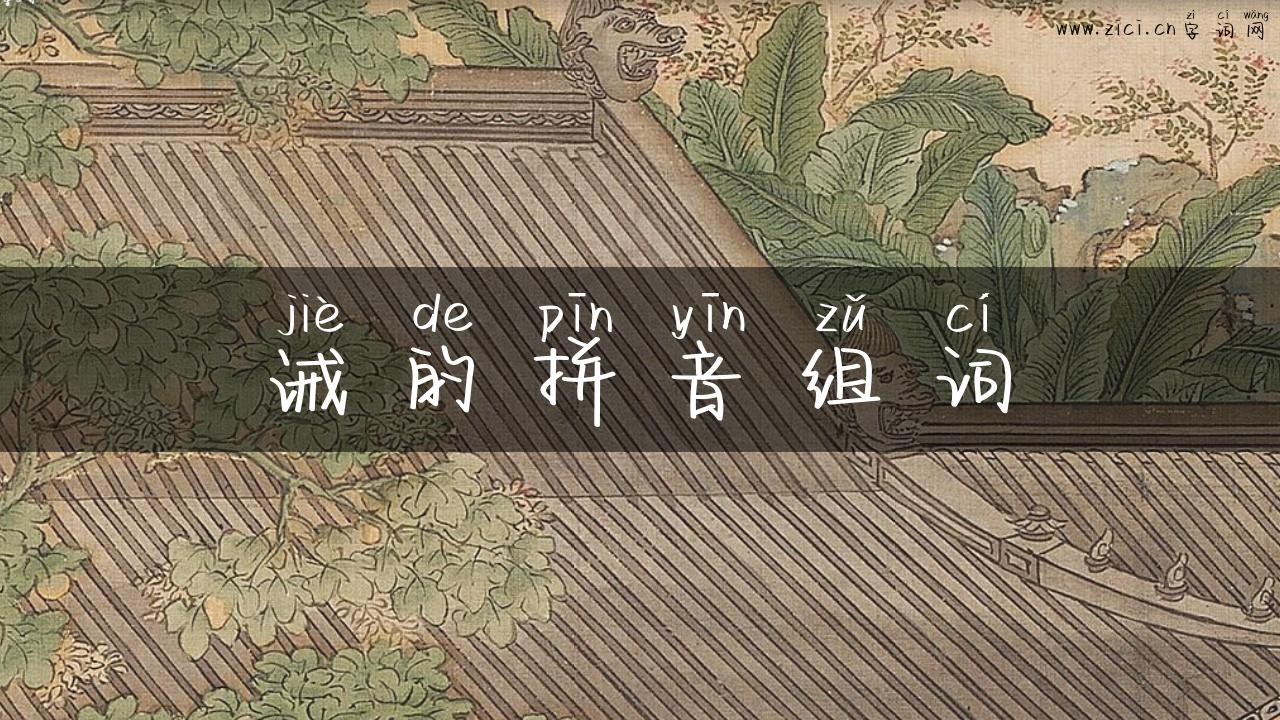 zì cí wǎng
www.zici.cn 字词网
jiè de pīn yīn zǔ cí
诫的拼音组词